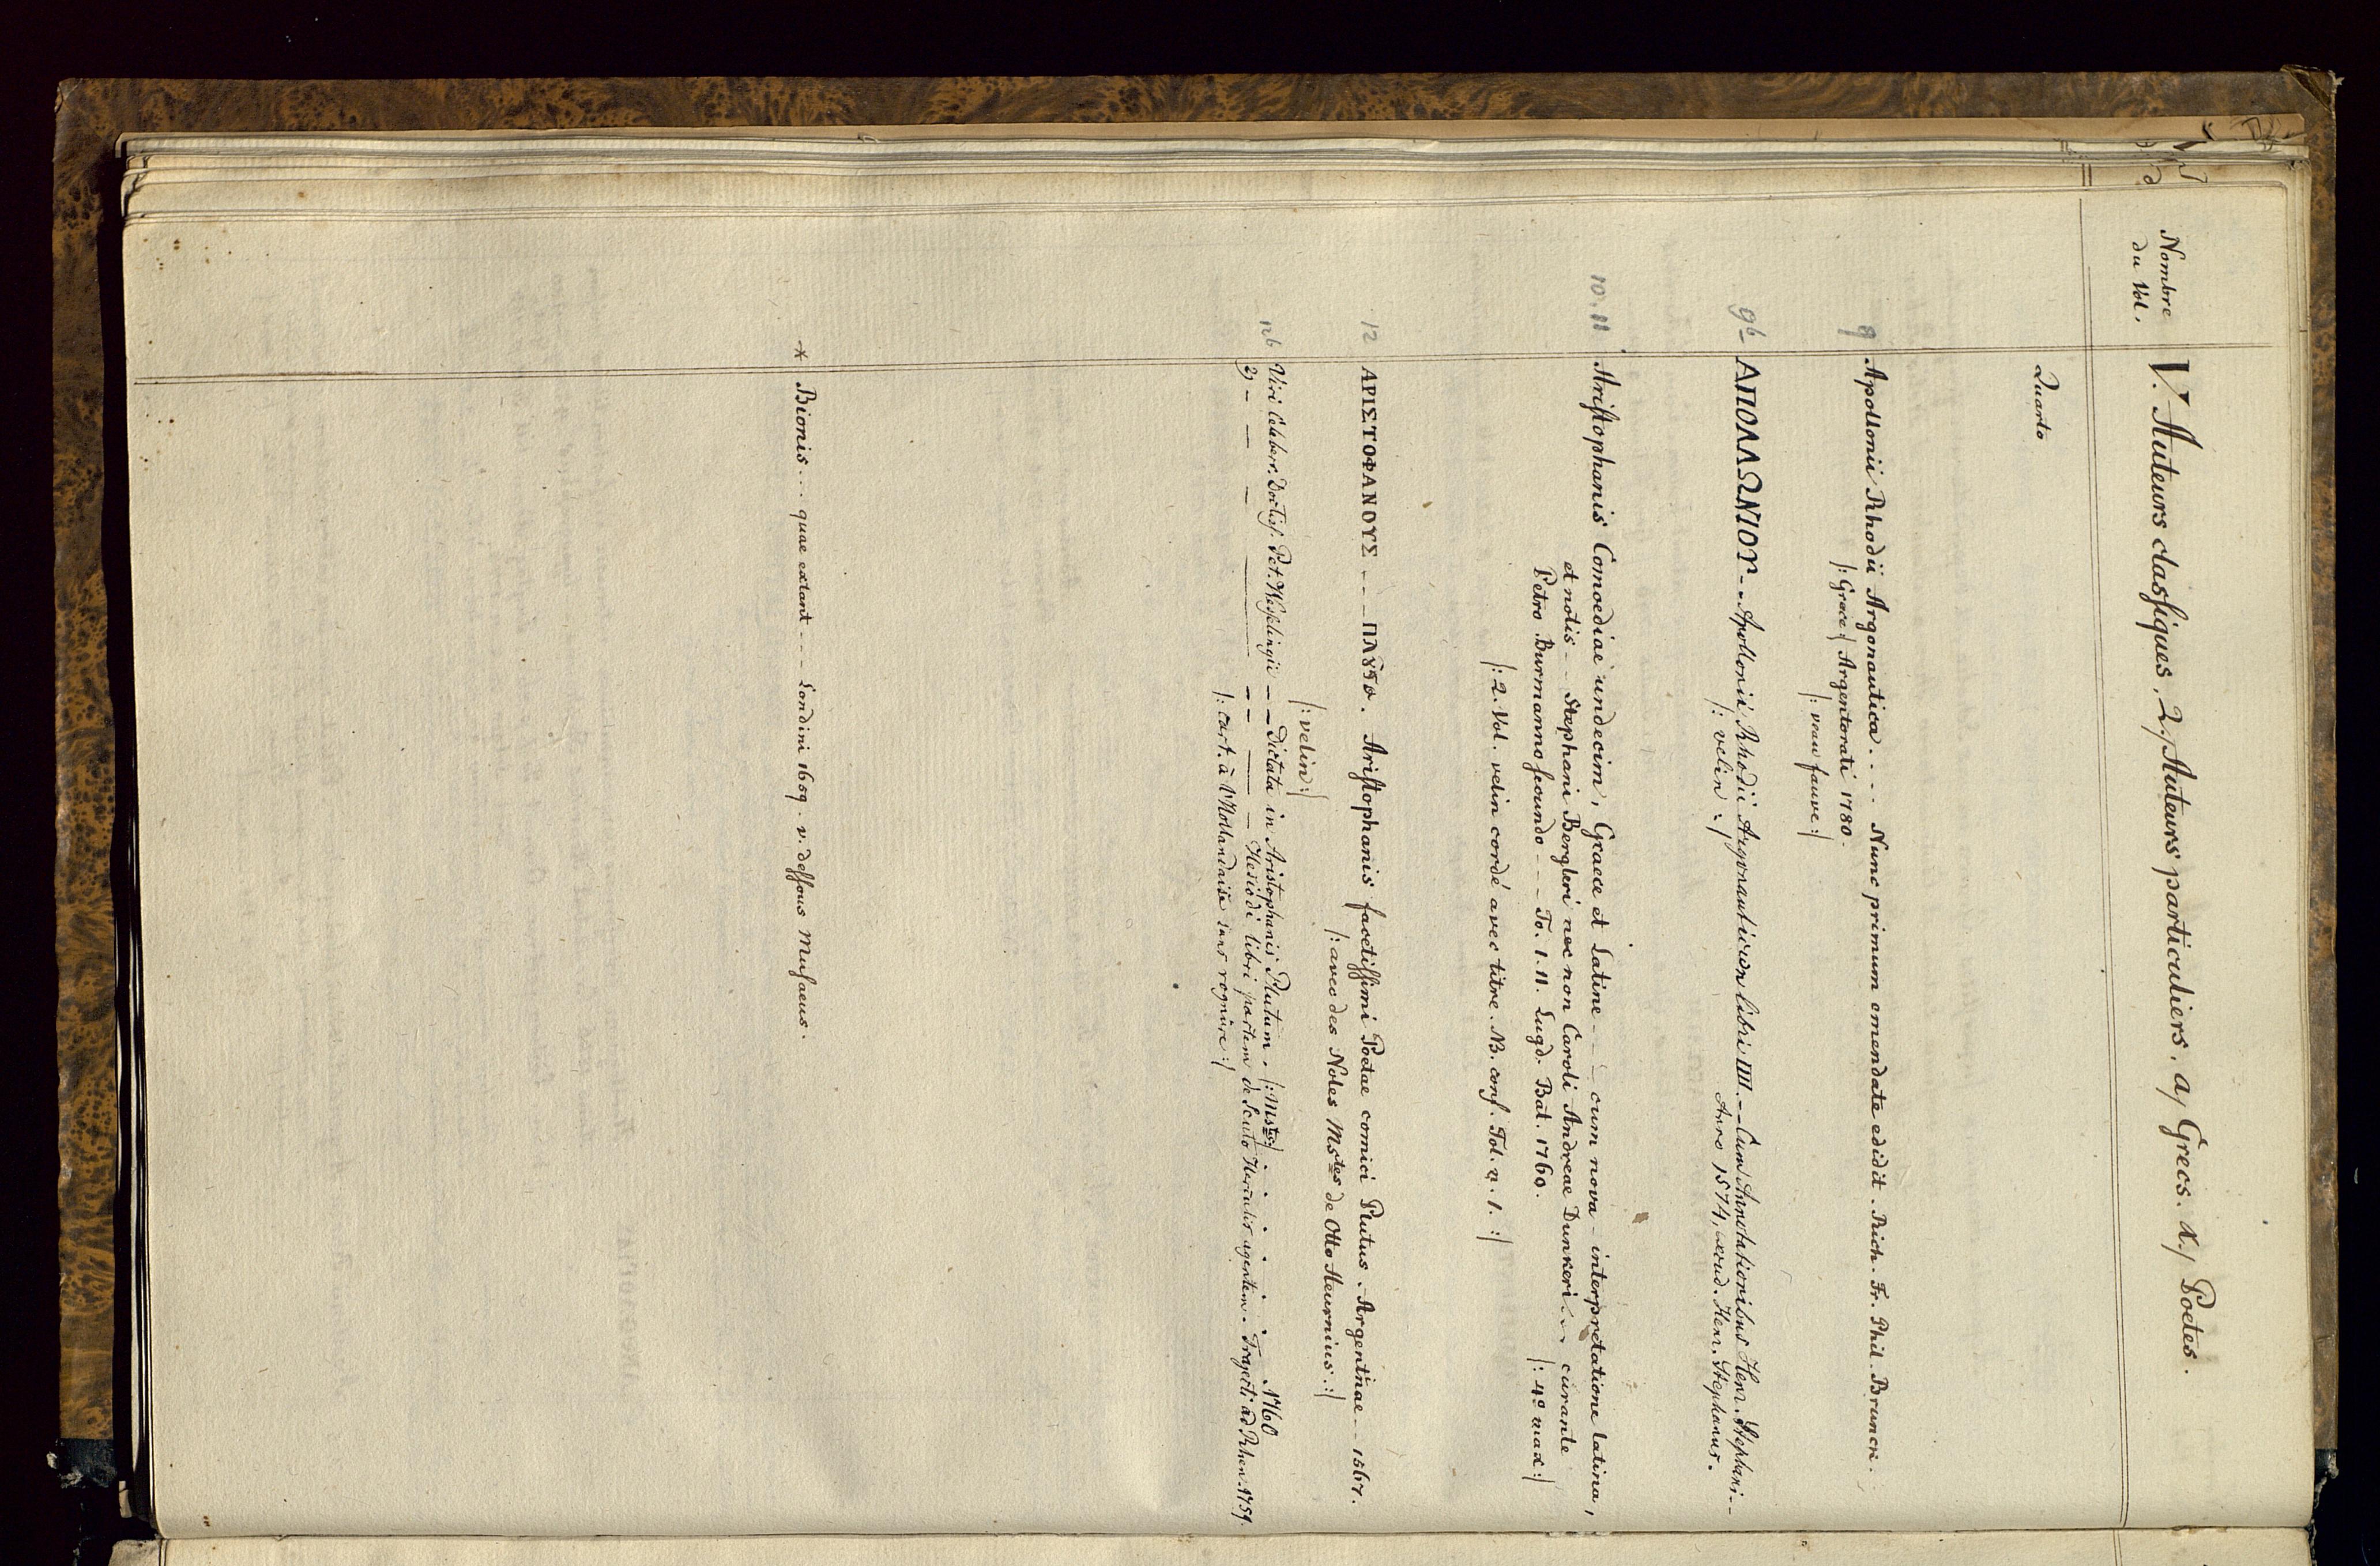 Nombre
du Vol.
V. Auteurs classiques. 2./ Auteurs particuliers. a/ Grecs. α./ Poetes.
Quarto
9 Apollonii Rhodii Argonautica . . . Nunc primum emendate edidit. Rich. Fr. Phil. Brunck.
/: Graece :/ Argentorati 1780.
/: veau fauve :/
9b ΑΠΟΛΛΩΝΙΟΥ - - Apollonii Rhodii Argonauticωn libri IIII. - - Cum Annotationibus Henr. Stephani - -
Anno 1574, excud. Henr. Stephanus.
/: velin :/
10. 11 Aristophanis Comoediae undecim, Graece et Latine - - - cum nova - interpretatione latina,
et notis - - Stephani Bergleri nec non Caroli Andreae Dunkeri - - - curante
Petro Burmanno secundo - - - To. I. II. Lugd. Bat. 1760. /: 4o max :/
/: 2. Vol. velin cordé avec titre. NB. conf. Fol. a. 1. :/
12 ΑΡΙΣΤΟΦΑΝΟΥΣ - - - ΠΛȣ̃ϛΟ. Aristophanis facetissimi Poetae comici Plutus. Argentinae - - 1567.
/: avec des Notes Mstes de Otto Heurnius :/
/: velin :/
12b Viri Celeberr. Doctiss. Pet. Wesselingii - - Dictata in Aristophanis Plutum. /: Msto :/ . . . . . . 1760
2) - - - - - - - Hesiodi libri partem de Scuto Herculis agentem. Trajecti ad Rhen. 1759.
/: cart. à l'Hollandaise sans rognure :/
* Bionis . . . quae extant - - - Londini 1659. v. dessous Musaeus.